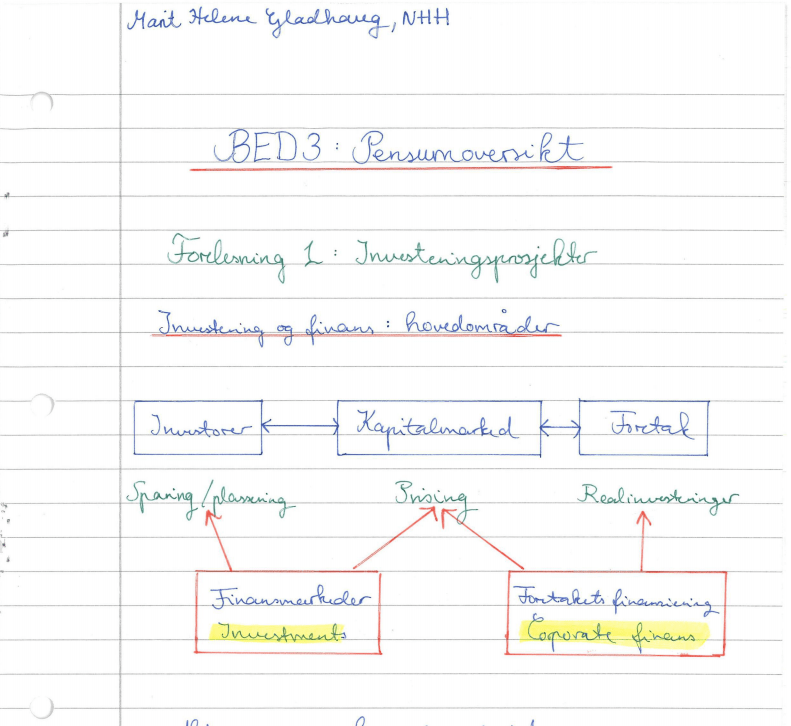 Marit Helene Gladhaug, NHH
BED3: Pensumoversikt
Forelesning 1: Investeringsprosjekter
Investering og finans: hovedområder
Investorer
Kapitalmarked
Foretak
Sparing/plassering
Prising
Realinvesteringer
Finansmarkeder
Investments
Foretakets finansiering
Coporate finans